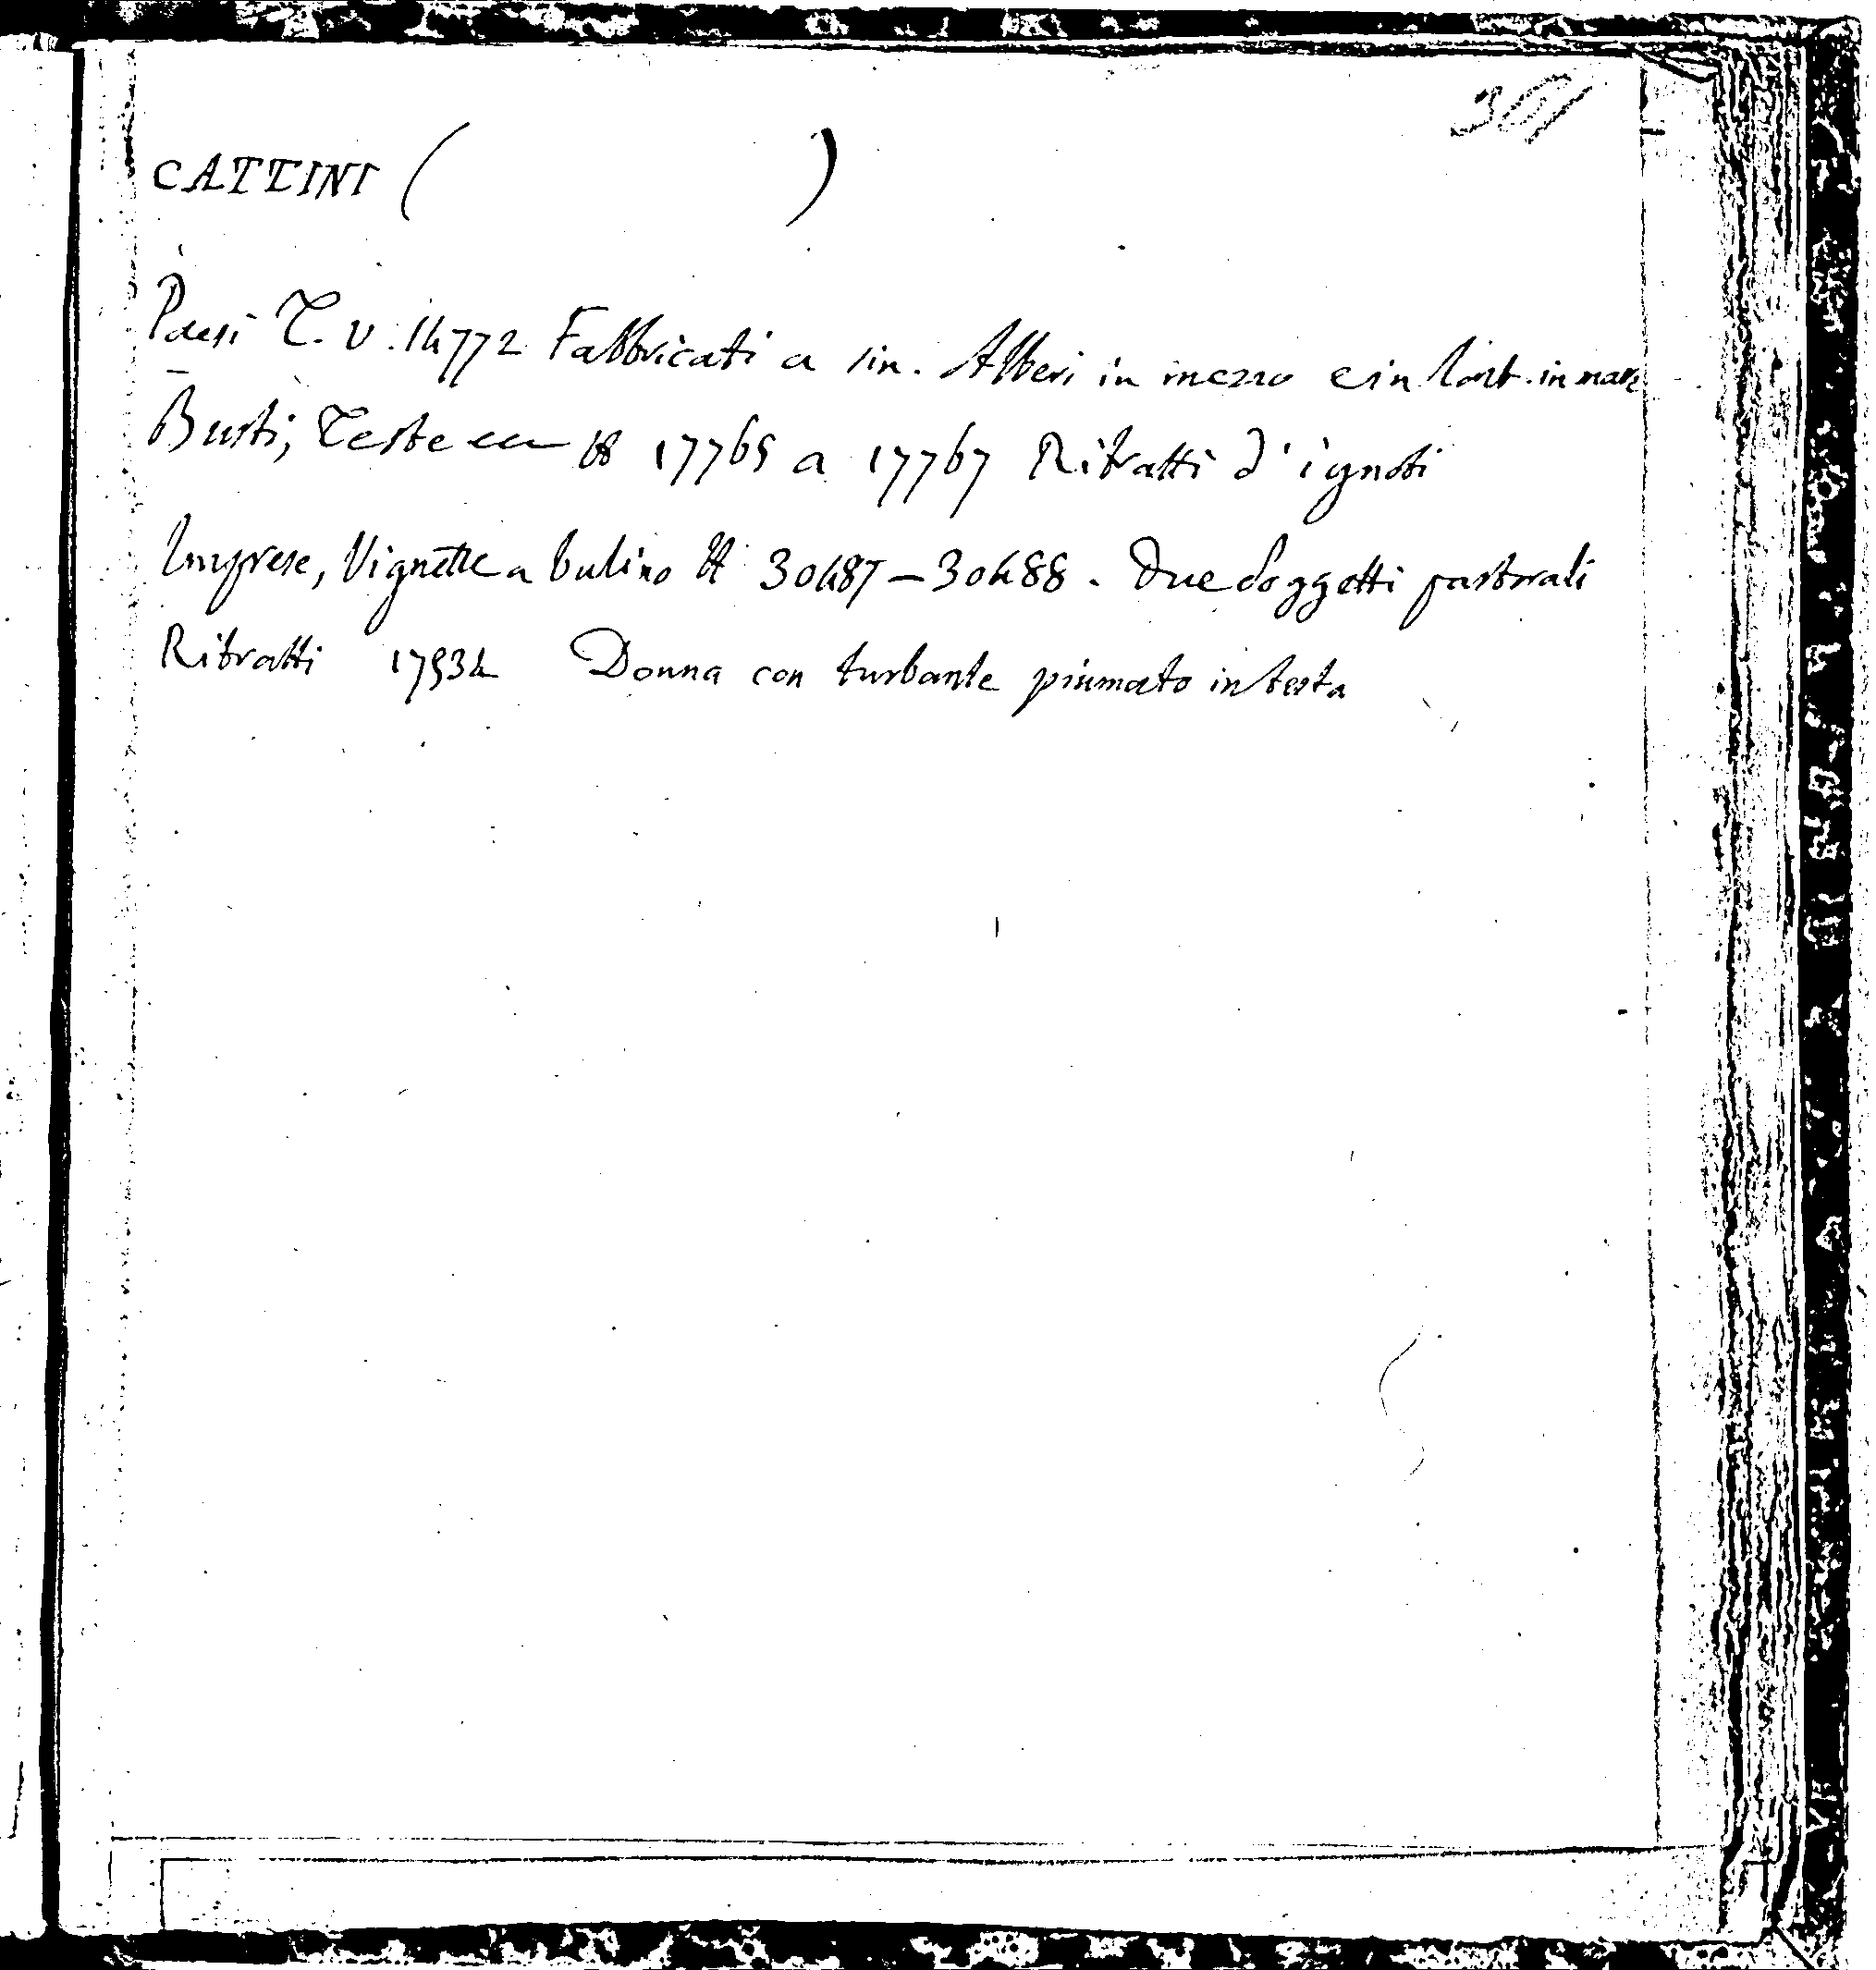 301
CATTINI ( )
Paesi T. V. 14772 Fabbricati a sin. Alberi in mezzo e in lont. in mare
Busti, Teste ecc tt 17765 a 17767 Ritratti d'ignoti
Imprese, Vignette a bulino tt 30487 - 30488. Due soggetti pastorali
Ritratti 17534 Donna con turbante piumato in testa